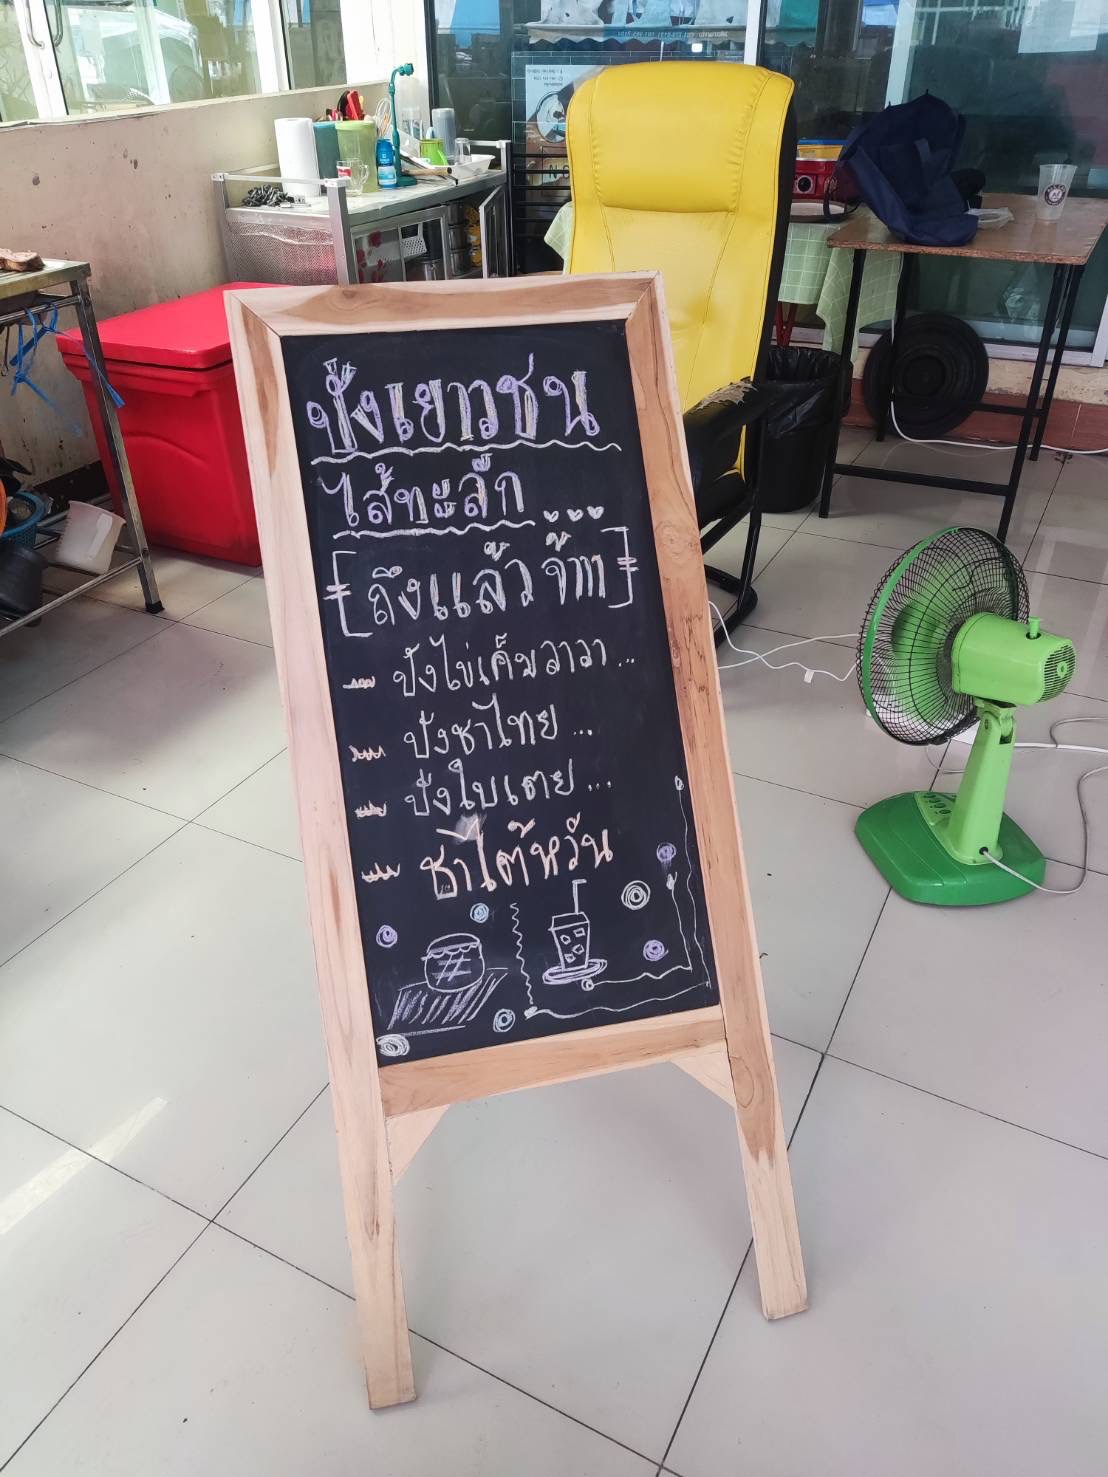 ปังเยาวชน
ไส้ทะลัก...
[ถึงแล้วจ้าา]
ปังไข่เค็มลาวา...
ปังชาไทย...
ปังใบเตย...
ชาไต้หวัน